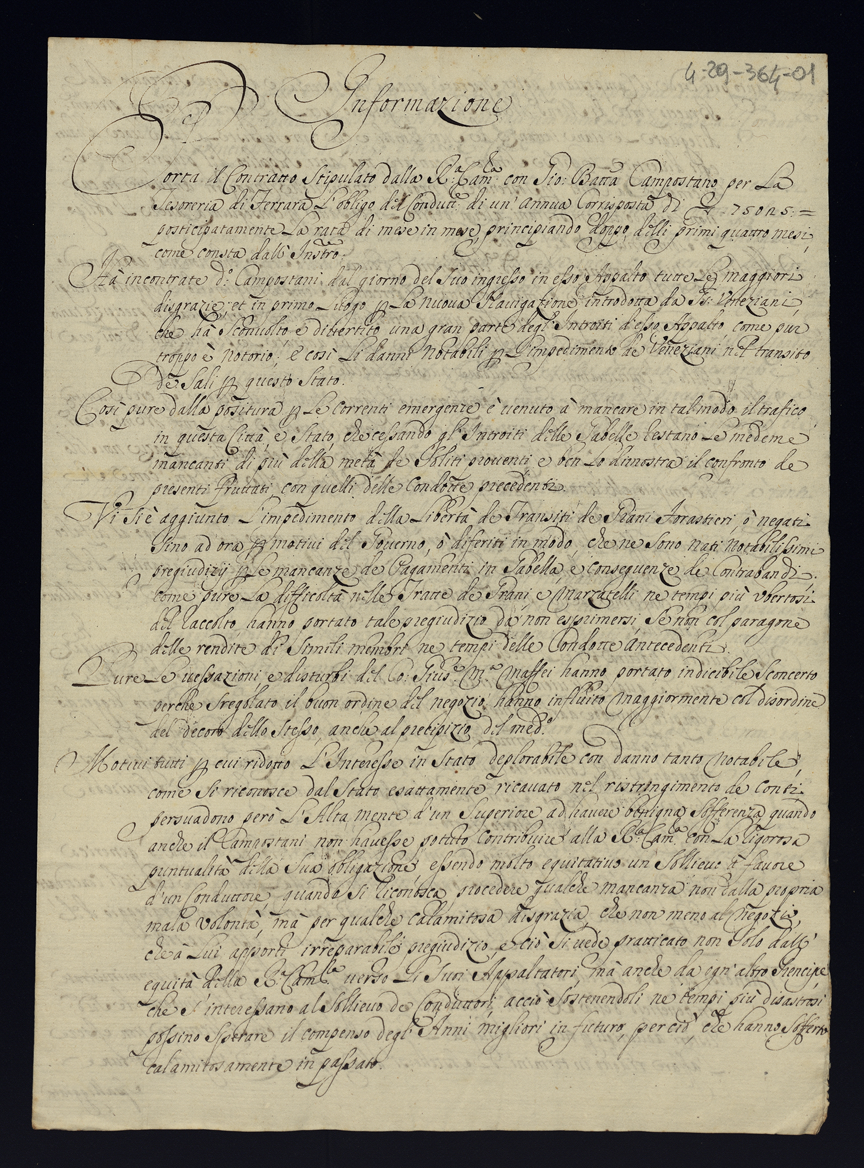 4-29-364-01
Informazione
Porta il Contratto Stipulato dalla R.a Cam.ra con Gio: Batt.a Campostano per La
Tesoreria di Ferrara L'obligo di Condutt.e di un'annua Corrisposta di 75025:=
posticipatamente La rata di mese in mese, principiando doppo delli primi quattro mesi,
come consta dall'Instro.
Hà incontrate d.o Campostani dal giorno del Suo ingresso in esso Appalto tutte Le maggiori
disgrazie, et in primo Luogo p La nuova Navigatione introdotta da SS.i Veneziani,
che hà Sconvolto e divertito una gran parte degl'Introiti d'esso Appalto come pur
troppo è notorio, e così Li danni Notabili p L'impedimento de Veneziani nel transito
de Sali p questo Stato.
Così pure dalla positura p Le correnti emergenze è venuto à mancare in tal modo il trafico
in questa Città e Stato, che cessando gl'Introiti delle Gabelle restano Le medeme
mancanti di più della metà de Soliti proventi e ben Lo dimostra il confronto de
presenti fruttati con quelli delle Condotte precedenti.
Vi Si è aggiunto L'impedimento della Libertà de Transiti de Grani forastieri, ò negati
Sino ad ora p motivi del Governo, ò diferiti in modo, che ne Sono nati Notabilissimi
pregiudizij p Le mancanze de Pagamenti in Gabella e conseguenze de Contrabandi.
Come pure La difficoltà nelle Tratte de Grani, e Marzatelli ne tempi più ubertosi
del raccolto, hanno portato tale pregiudizio da non esprimersi, Se non col paragone
delle rendite di Simili membri ne tempi delle Condotte Antecedenti.
Pure Le vessazioni e disturbi del Co: Gius.e M.a Maffei hanno portato indicibile Sconcerto
perche Sregolato il buon ordine del negozio, hanno influito maggiormente col disordine
del decoro dello Stesso, anche al precipizio del med.o
Motivi tutti p cui ridotto L'Interesse in Stato deplorabile con danno tanto notabile,
come Si riconosce dal Stato esattamente ricavato nel ristringimento de Conti
persuadono però L'Alta mente d'un Superiore ad havere benigna Sofferenza quando
anche il Campostani non havesse potuto Contribuire alla R.a Cam.a con La rigorosa
puntualità della Sua obligazione, essendo molto equitativo un Sollievo à favore
d'un Conduttore, quando Si riconosca procedere qualche mancanza non dalla propria
mala volontà, mà per qualche calamitosa disgrazia, che non meno al Negozio,
che à Lui apporti irreparabile pregiudizio, e ciò Si vede pratticato non Solo dall'
equità della R. Cam.ra verso Li Suoi Appaltatori, mà anche da ogn'altro Prencipe
che S'interessano al Sollievo de Conduttori, acciò Sostenendoli ne tempi più disastrosi
possino Sperare il compenso degl'Anni migliori in futuro, per ciò, che hanno Sofferto
calamitosamente in passato.